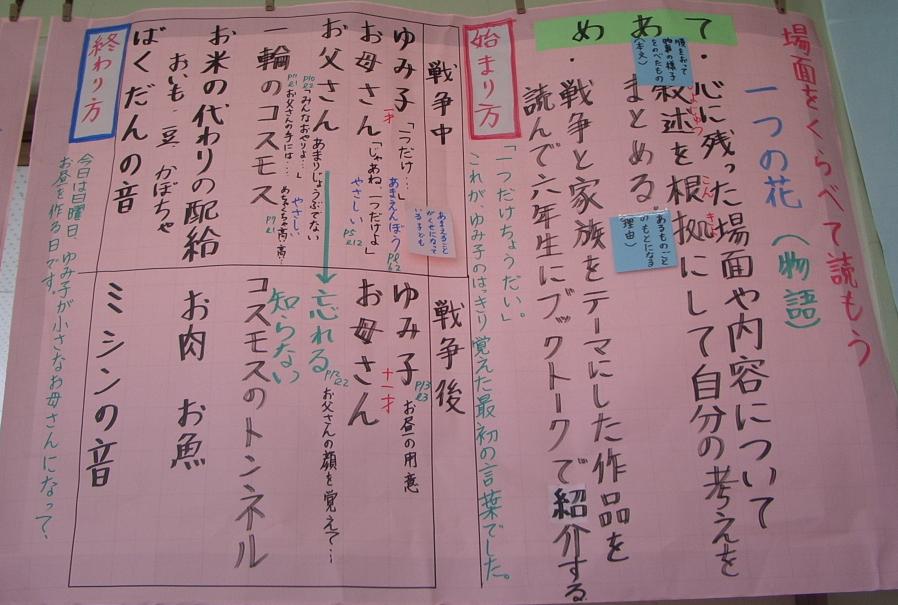 場面をくらべて読もう
一つの花(物語)
て・心に残った場面や内容について
叙述を根拠にして自分の考えを
じょじゅつ
こんきょ
あ まとめる。
め・戦争と家族をテーマにした作品を
読んで六年生にブックトークで紹介する
始まり方
「一つだけちょうだい。」
これが、ゆみ子のはっきり覚えた最初の言葉でした。
戦争中
ゆみ子「一つだけ…
あまえんぼう
お母さん「じゃあね、一つだけよ」
やさしい
お父さん あまりじょうぶでない
「みんなおやりよ…」
やさしい
お父さんの手には…
一輪のコスモス
お米の代わりの配給
おいも 豆 かぼちゃ
ばくだんの音
戦争後
ゆみ子 お昼の用意
十一才
お母さん
忘れる
お父さんの顔を覚えて…
知らない
コスモスのトンネル
お肉 お魚
ミシンの音
終わり方
今日は日曜日、ゆみ子が小さなお母さんになって、
お昼を作る日です。